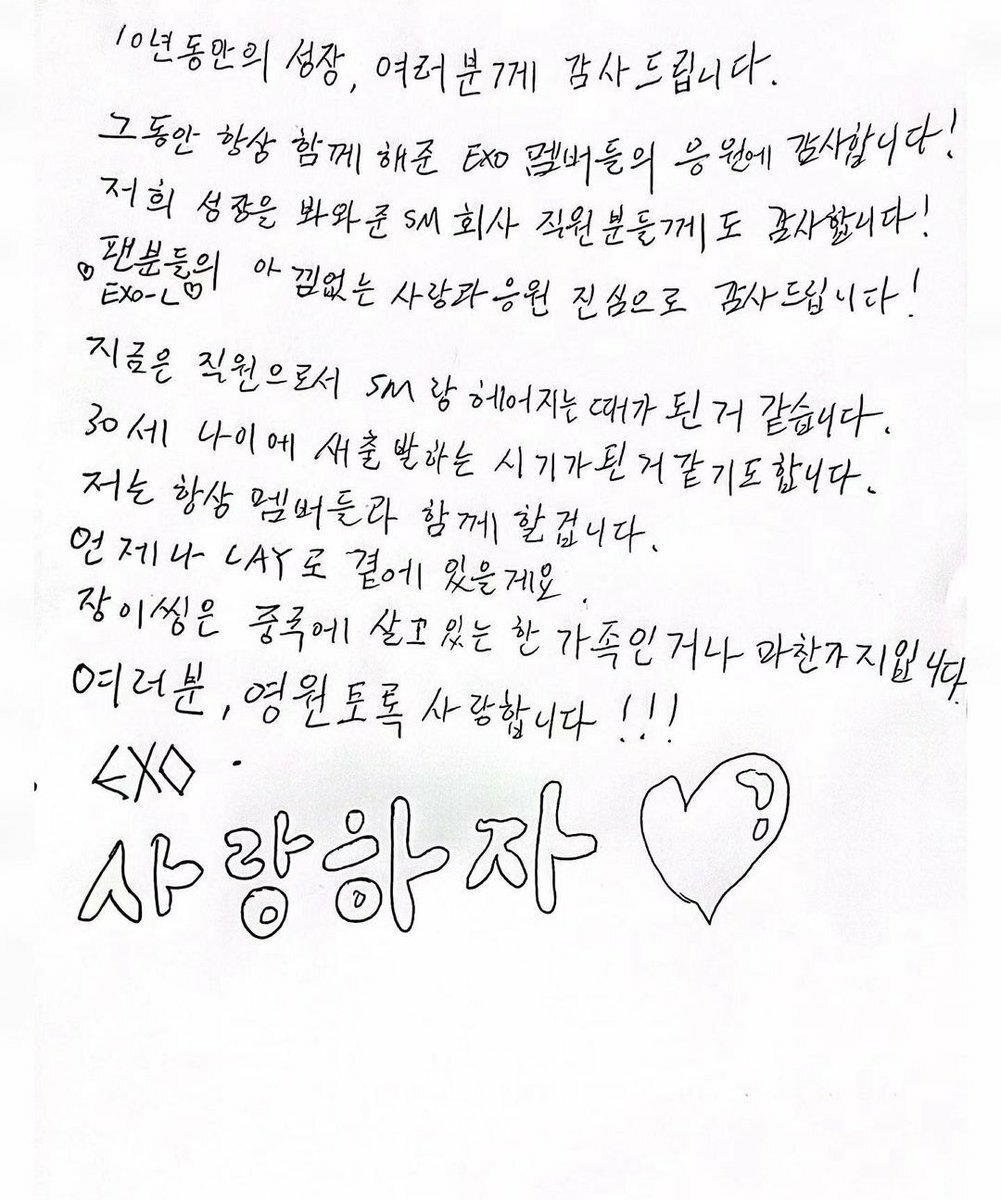 10년동안의 성장, 여러분께 감사드립니다.
그동안 항상 함께 해준 EXO 멤버들의 응원에 감사합니다!
저희 성장을 봐와준 SM 회사 직원분들께도 감사합니다!
♡팬분들의 아낌없는 사랑과 응원 진심으로 감사드립니다!
EXO-L♡
지금은 직원으로서 SM랑 헤어지는 때가 된 거 같습니다.
30세 나이에 새출발하는 시기가 된 거 같기도 합니다.
저는 항상 멤버들과 함께 할 겁니다.
언제나 LAY로 곁에 있을게요.
장이씽은 중국에 살고 있는 한 가족인거나 마찬가지입니다.
여러분, 영원토록 사랑합니다!!!
EXO.
사랑하자 ♡